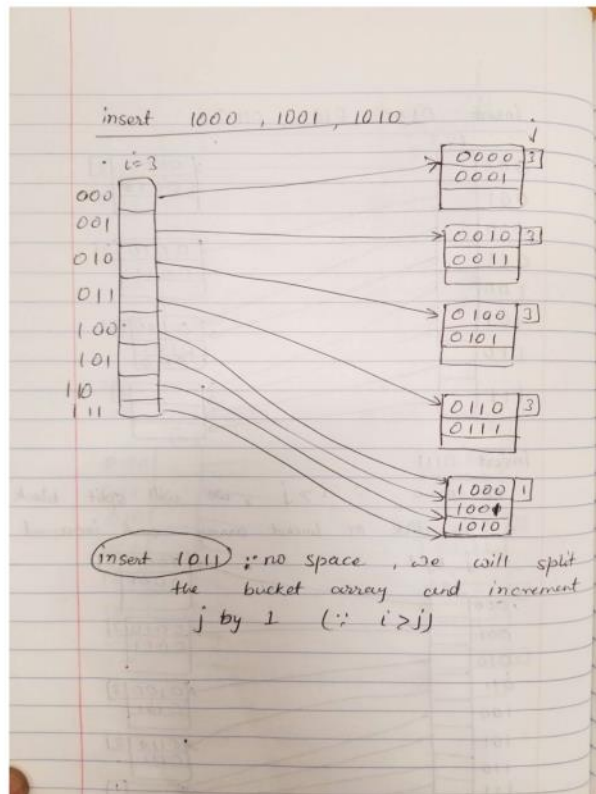 insert 1000 , 1001 , 1010
i=3
j
000
001
010
011
100
101
110
111
0000 3
0001
0010 3
0011
0100 3
0101
0110 3
0111
1000 1
1001
1010
insert 1011 ∵ no space , we will split
the bucket array and increment
j by 1 (∵ i>j)